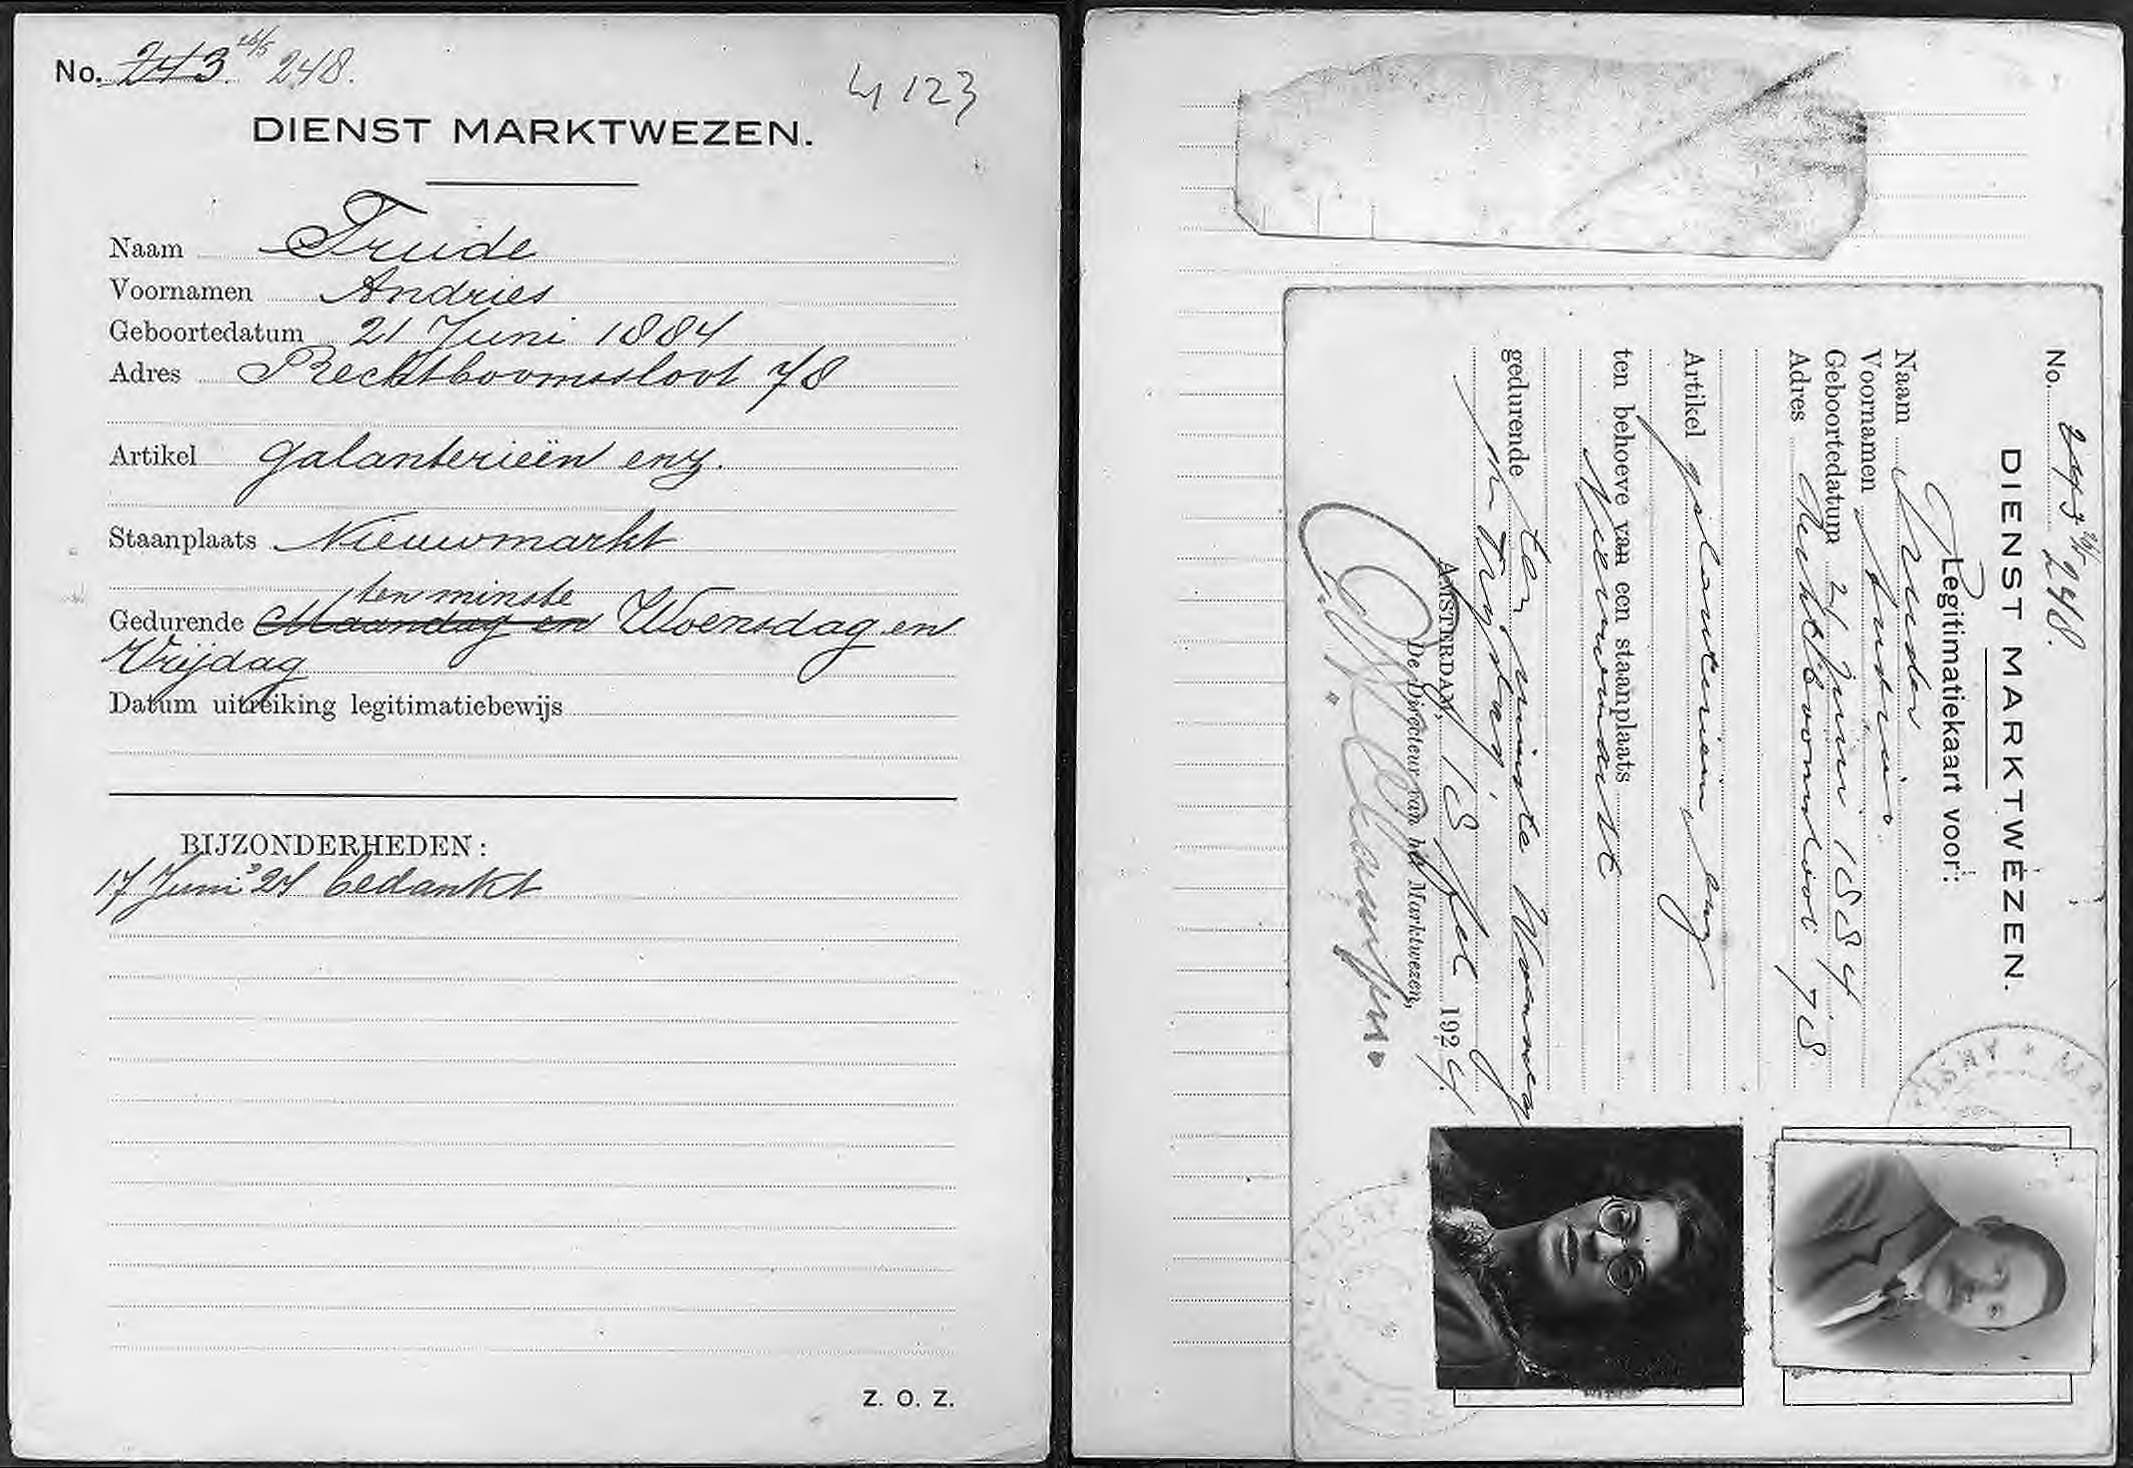 No. 243. 26/5 248.
4123
DIENST MARKTWEZEN.
Naam Truide
Voornamen Andries
Geboortedatum 21 Juni 1884
Adres Rechtboomssloot 78
Artikel galanterieën enz.
Staanplaats Nieuwmarkt
ten minste
Gedurende Maandag en Woensdag en
Vrijdag
Datum uitreiking legitimatiebewijs
BIJZONDERHEDEN:
17 Juni '24 bedankt
Z. O. Z.
No. 243 26/5 248.
DIENST MARKTWEZEN.
Legitimatiekaart voor:
Naam
Voornamen Andries
Geboortedatum 21 Juni 1884
Adres Rechtboomsloot 78
Artikel galanterieën enz
ten behoeve van een staanplaats
Nieuwmarkt
gedurende ten minste Woensdag
en Vrijdag
AMSTERDAM, 18 1924.
De Directeur van het Marktwezen,